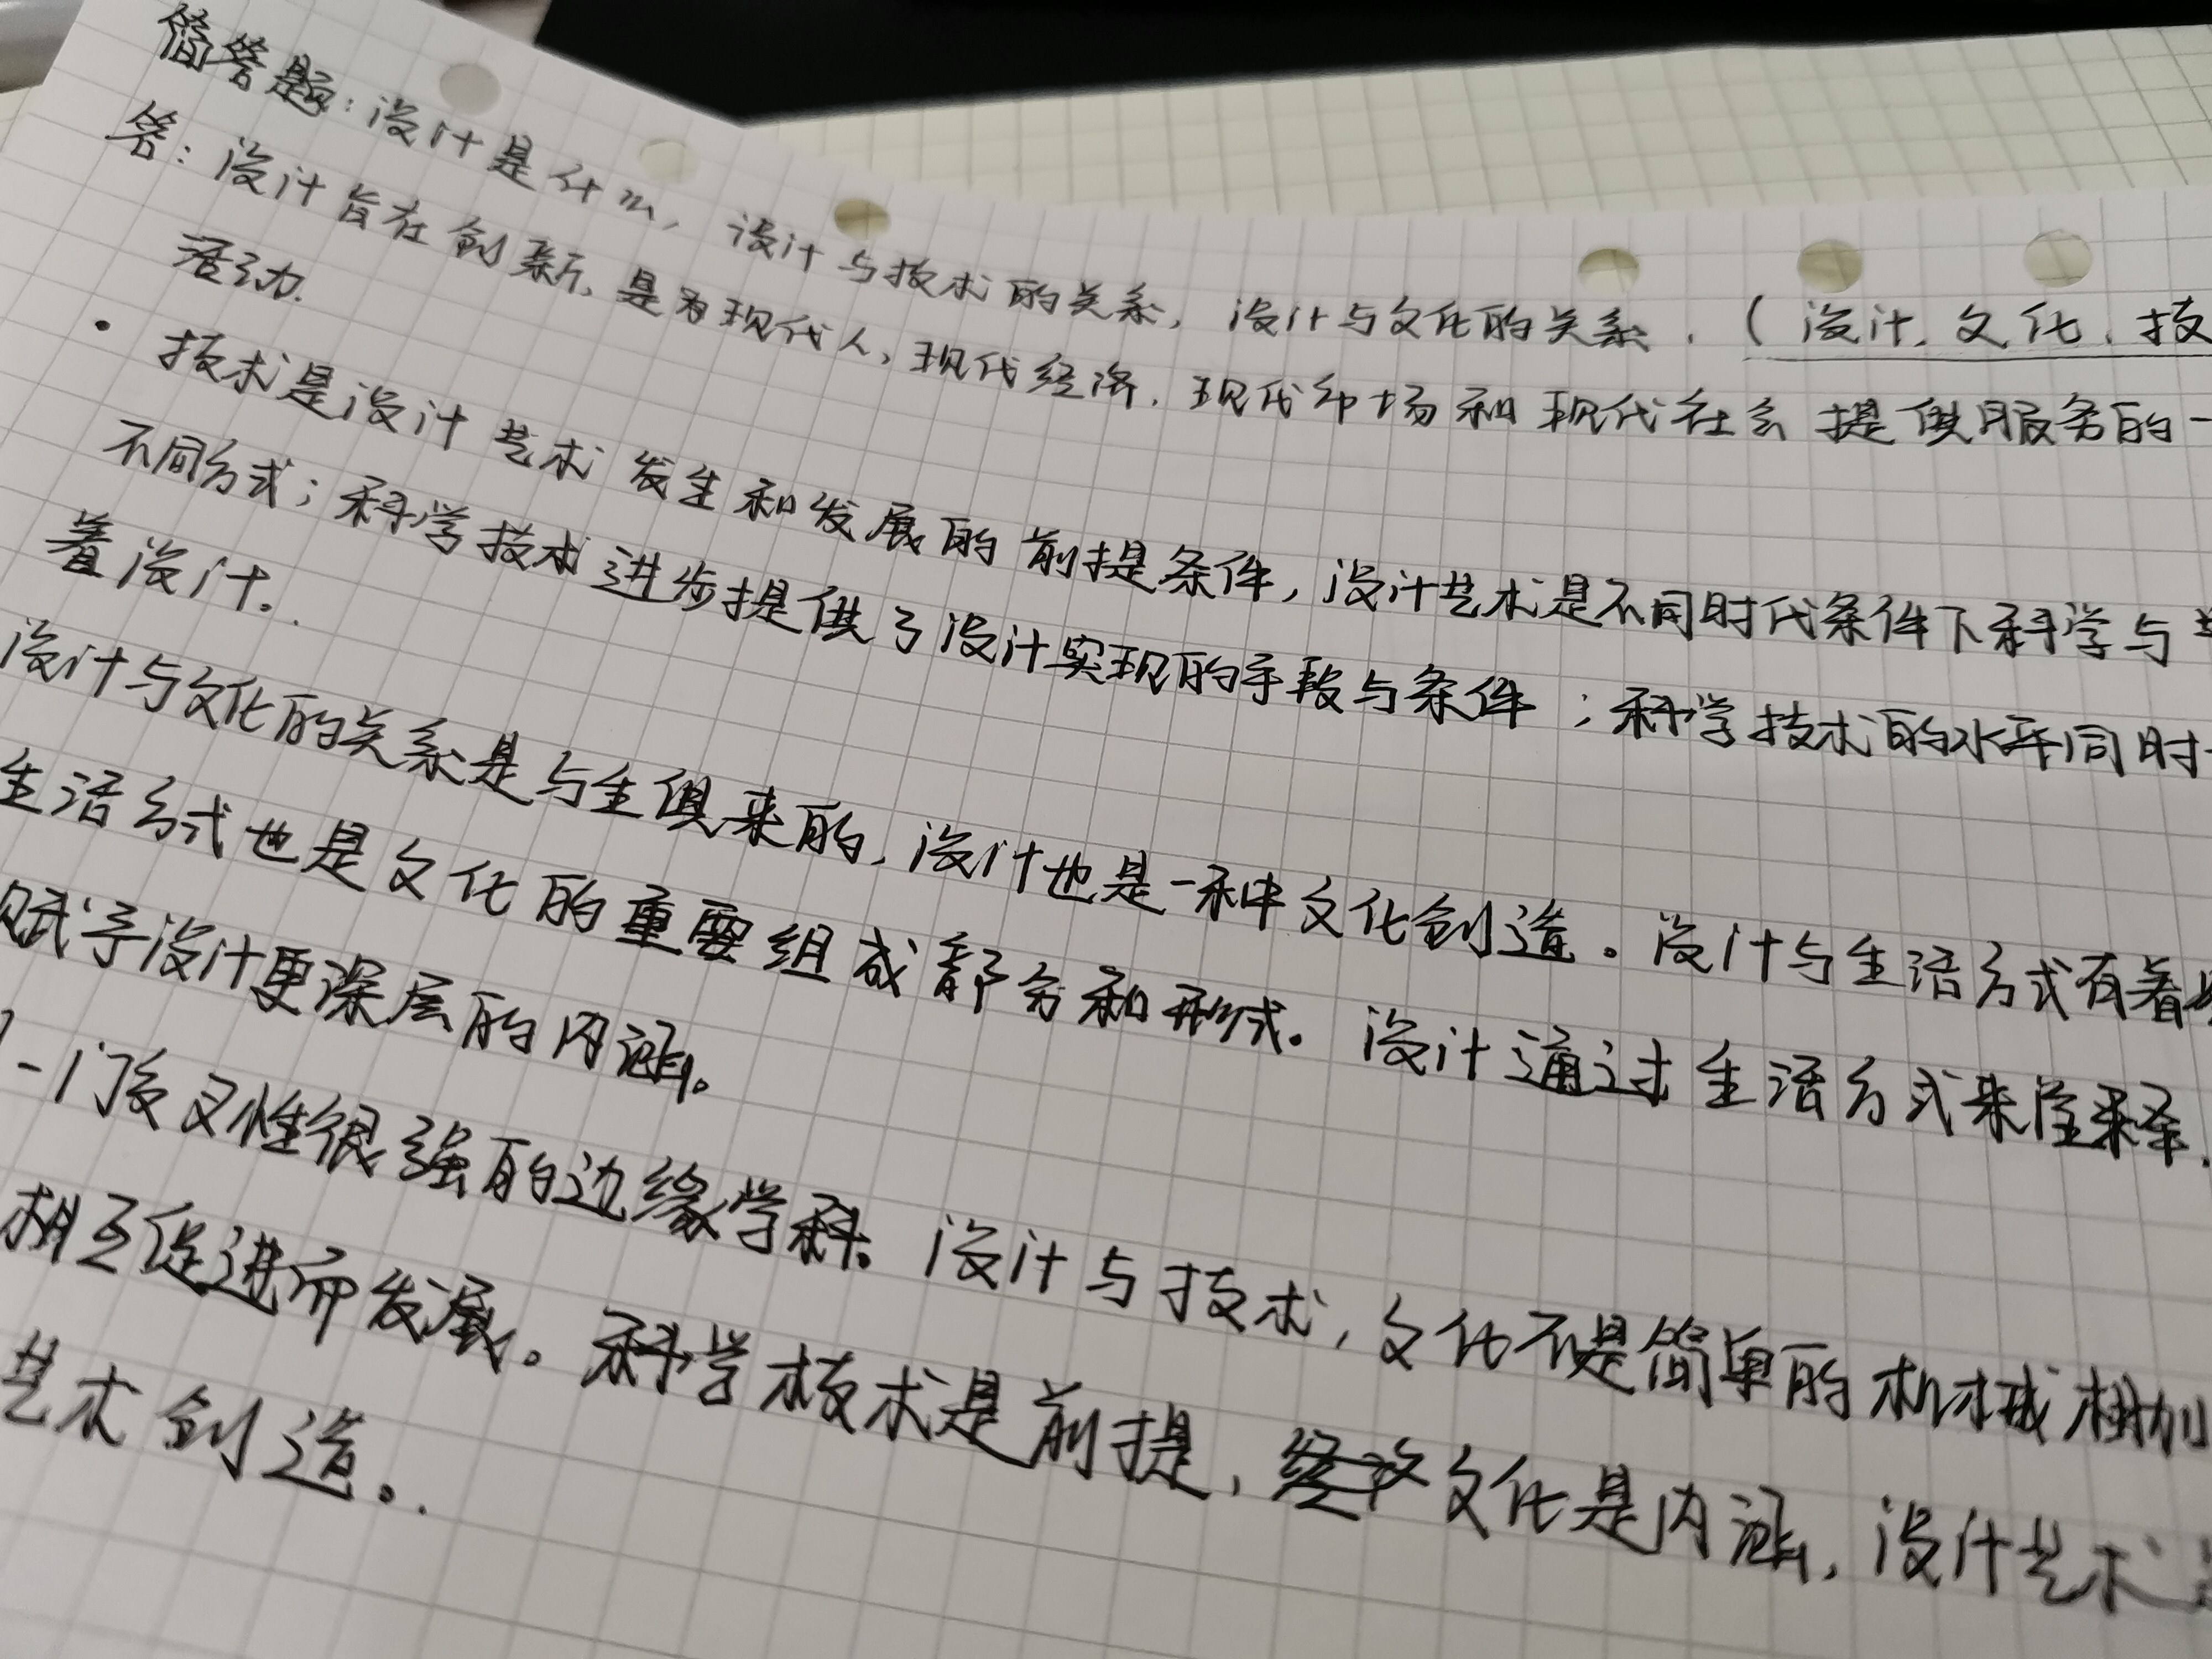 简答题：设计是什么，设计与技术的关系，设计与文化的关系.（设计、文化、技
答：设计旨在创新，是为现代人，现代经济、现代市场和现代社会提供服务的一
活动.
· 技术是设计艺术发生和发展的前提条件，设计艺术是不同时代条件下科学与
不同方式；科学技术进步提供了设计实现的手段与条件；科学技术的水平同时
着设计。
设计与文化的关系是与生俱来的，设计也是一种文化创造。设计与生活方式有着
生活方式也是文化的重要组成部分和形式。设计通过生活方式来诠释，
赋予设计更深层的内涵。
一门交叉性很强的边缘学科。设计与技术，文化不是简单的机械相加
相互促进而发展。科学技术是前提，文化是内涵，设计艺术
艺术创造。